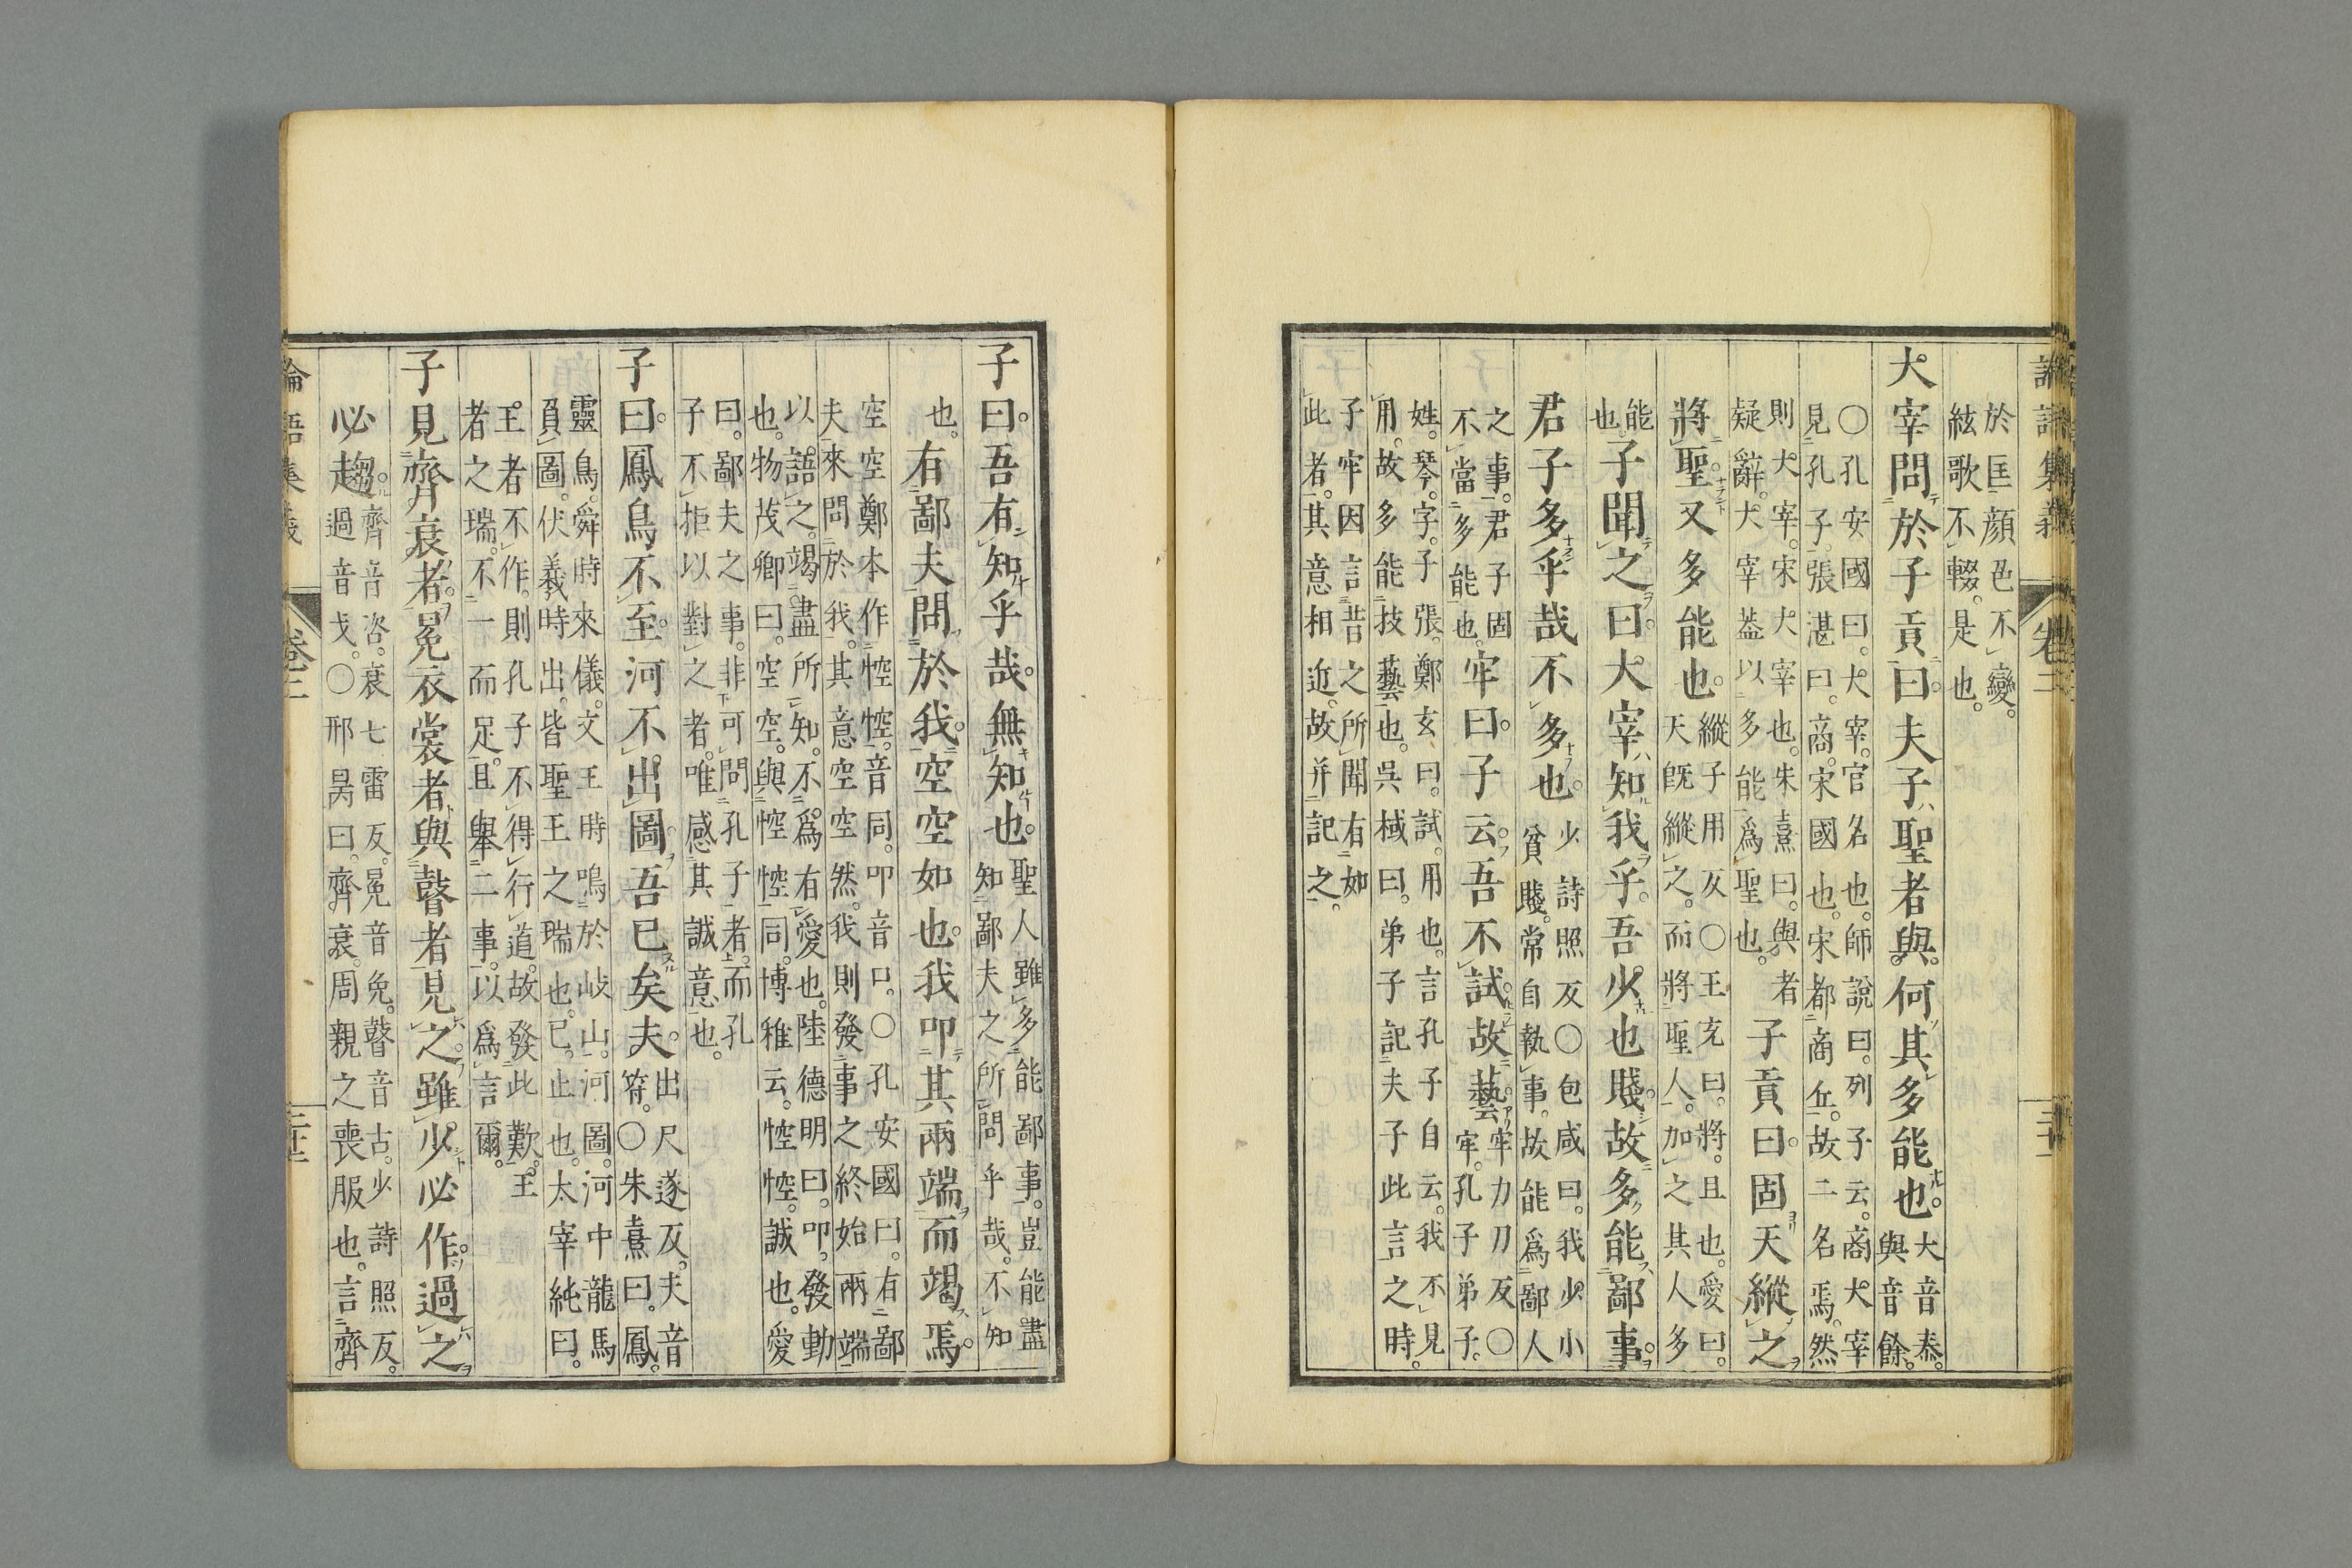 論語集義
卷二
於匡顔色不變
絃歌不輟。是也。
大宰問於子貢曰。夫子聖者與。何其多能也。大音泰。
與音餘。
○孔安國曰。大宰。官名也。師說曰。列子云。商大宰
見孔子。張湛曰。商。宋國也。宋都商丘。故二名焉。然
則大宰。宋大宰也。朱熹曰。與者
疑辭。大宰葢以多能爲聖也。子貢曰。固天縱之
將聖又多能也。縱子用反○王充曰。將。且也。愛曰。
天旣縱之。而將聖人。加之其人多
能
也。子聞之曰。大宰知我乎。吾少也賤。故多能鄙事。
君子多乎哉不多也。少詩照反○包咸曰。我少小
貧賤。常自執事。故能爲鄙人
之事。君子固
不當多能也。牢曰。子云。吾不試。故藝。牢力刀反○
牢。孔子弟子。
姓琴。字子張。鄭玄曰。試。用也。言孔子自云。我不見
用。故多能技藝也。吳棫曰。弟子記夫子此言之時。
子牢因言昔之所聞有如
此者。其意相近。故并記之。
子曰。吾有知乎哉。無知也。聖人雖多能鄙事。豈能盡
知鄙夫之所問乎哉。不知
也。有鄙夫問於我。空空如也。我叩其兩端而竭焉。
空空鄭本作悾悾。音同。叩音口。○孔安國曰。有鄙
夫來問於我。其意空空然。我則發事之終始兩端
以語之。竭盡所知。不爲有愛也。陸德明曰。叩。發動
也。物茂卿曰。空空。與悾悾同。博稚云。悾悾。誠也。愛
曰。鄙夫之事。非可問孔子者。而孔
子不拒以對之者。唯感其誠意也。
子曰。鳳鳥不至。河不出圖。吾已矣夫。出尺遂反。夫音
符。○朱熹曰。鳳。
靈鳥。舜時來儀。文王時鳴於岐山。河圖。河中龍馬
負圖。伏羲時出。皆聖王之瑞也。已。止也。太宰純曰。
王者不作。則孔子不得行道。故發此歎。王
者之瑞。不一而足。且舉二事。以爲言爾。
子見齊衰者。冕衣裳者與瞽者。見之。雖少必作。過之
必趨。齊音咨。衰七雷反。冕音免。瞽音古。少詩照反。
過音戈。○邢昺曰。齊衰。周親之喪服也。言齊
論語集義
卷二